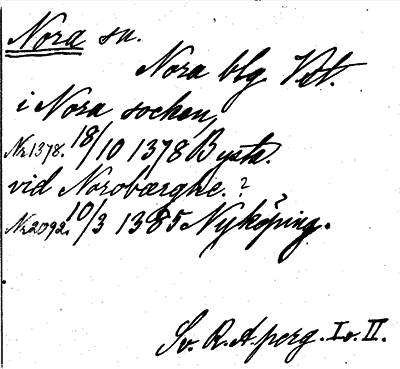 Nora sn.
Nora blg. Vstl.
i Nora socken,
Nr 1378. 18/10 1378 Bysta.
vid Norobærghe. ?
Nr 2092. 10/3 1385 Nyköping. ?
Sv. R. A. perg. I o. II.